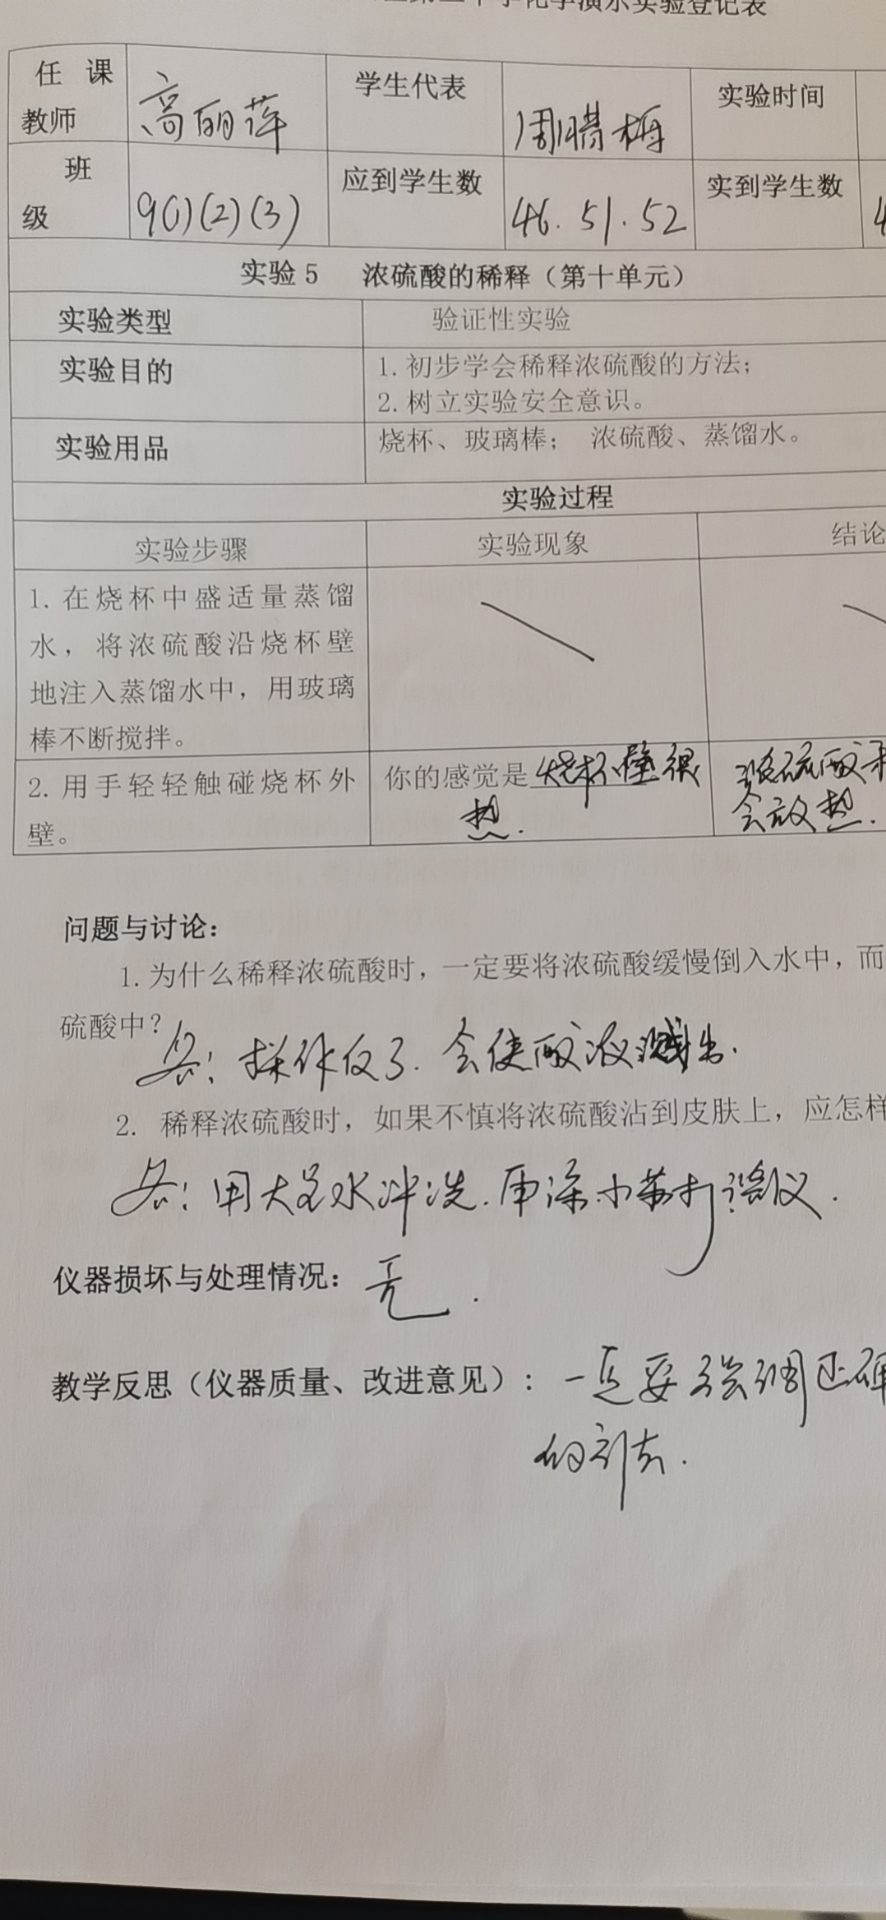 中学化学演示实验登记表
任 课 学生代表 实验时间
教师 高丽萍 周腊梅
班 应到学生数 实到学生数
级 9(1)(2)(3) 46. 51. 52 4
实验5 浓硫酸的稀释（第十单元）
实验类型 验证性实验
实验目的 1. 初步学会稀释浓硫酸的方法；
2. 树立实验安全意识。
实验用品 烧杯、玻璃棒； 浓硫酸、蒸馏水。
实验过程
实验步骤 实验现象 结论
1. 在烧杯中盛适量蒸馏
水，将浓硫酸沿烧杯壁
地注入蒸馏水中，用玻璃
棒不断搅拌。
2. 用手轻轻触碰烧杯外 你的感觉是 烧杯壁很 浓硫酸
壁。 热. 会放热.
问题与讨论：
1. 为什么稀释浓硫酸时，一定要将浓硫酸缓慢倒入水中，而
硫酸中？
答：操作反了. 会使酸液溅出.
2. 稀释浓硫酸时，如果不慎将浓硫酸沾到皮肤上，应怎样
答：用大量水冲洗. 再涂小苏打溶液.
仪器损坏与处理情况： 无.
教学反思（仪器质量、改进意见）： 一定要强调正确
的方法.